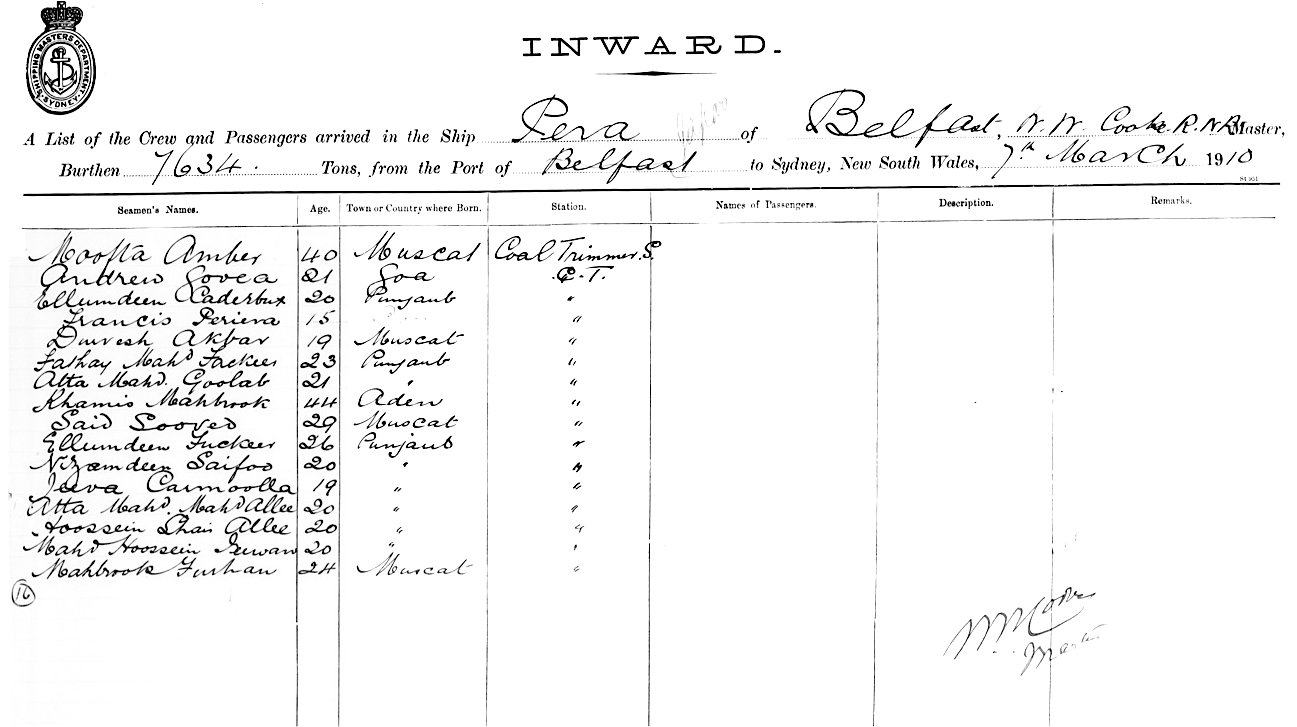 SHIPPING MASTERS DEPARTMENT SYDNEY
INWARD.
A List of the Crew and Passengers arrived in the Ship Pera of Belfast, W. W. Cooke R.N.R. Master,
Burthen 7634. Tons, from the Port of Belfast to Sydney, New South Wales, 7th March 1910
Seamen's Names. Age. Town or Country where Born. Station. Names of Passengers. Description. Remarks.
Moofta Amber 40 Muscat Coal Trimmer. S.
Andrew Govea 21 Goa C.T.
Ellumdeen Caderbux 20 Punjaub "
Francis Periera 15 "
Durvesh Akbar 19 Muscat "
Fathay Mahd Fackeer 23 Punjaub "
Atta Mahd. Goolab 21 " "
Khamis Mahbrook 44 Aden "
Said Sooved 29 Muscat "
Ellumdeen Fuckeer 26 Punjaub "
Nizamdeen Saifoo 20 " "
Jeeva Carmoolla 19 " "
Atta Mahd. Mahd Allee 20 " "
Hoossein Shair Allee 20 " "
Mahd Hoossein 20 " "
Mahbrook Furhan 24 Muscat "
16
W W Cooke
Master